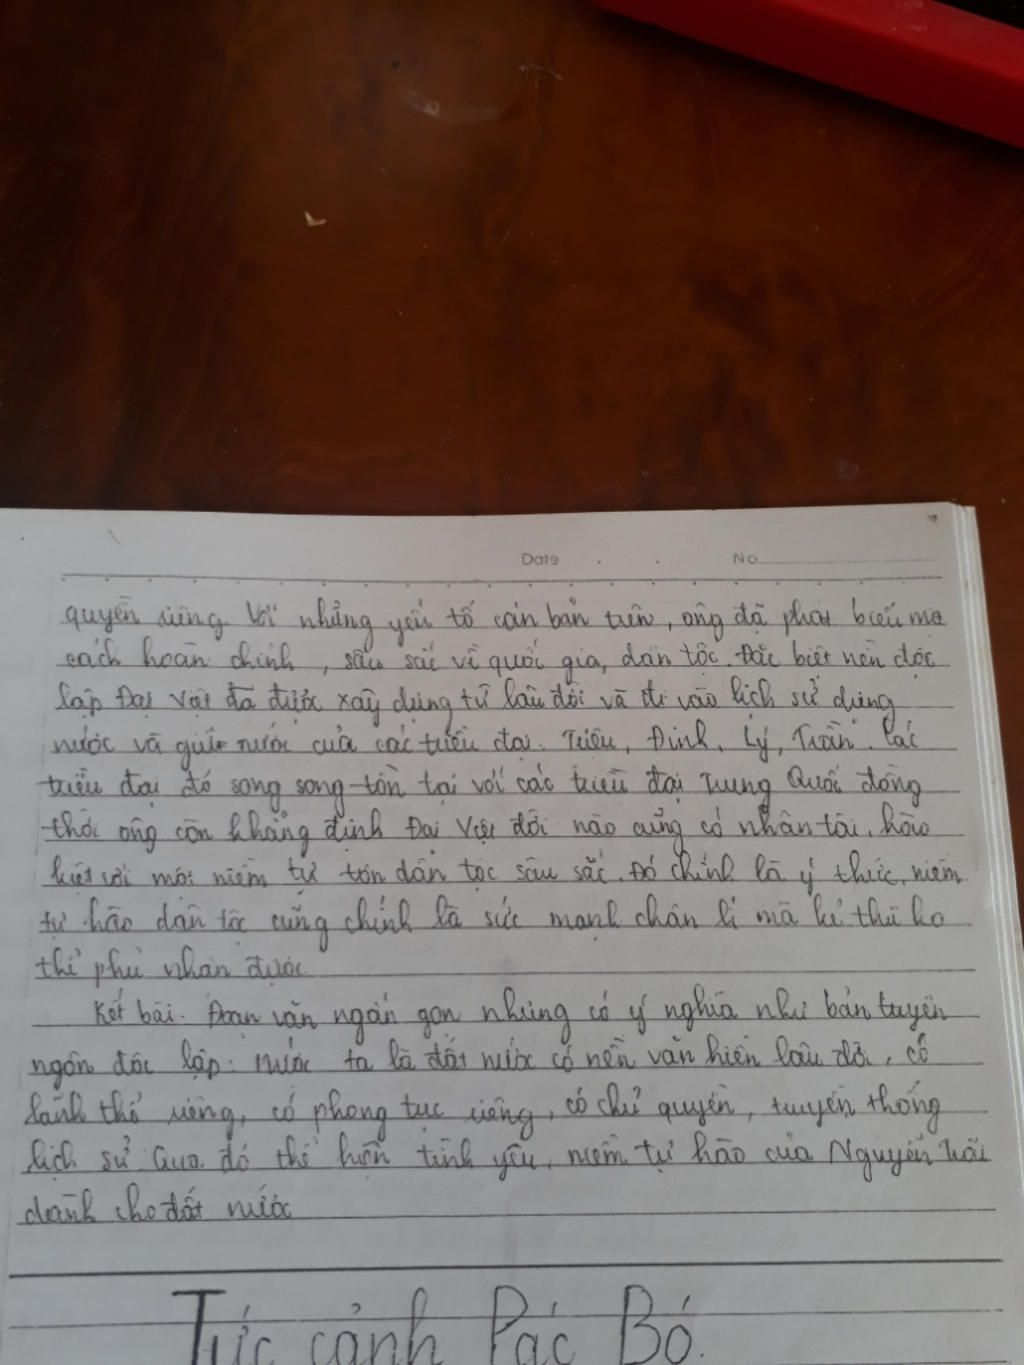 Date . . No
quyền riêng. Với những yếu tố căn bản trên, ông đã phát biểu một
cách hoàn chỉnh, sâu sắc về quốc gia, dân tộc. Đặc biệt nền độc
lập Đại Việt đã được xây dựng từ lâu đời và đi vào lịch sử dựng
nước và giữ nước của các triều đại. Triệu, Đinh, Lý, Trần. Các
triều đại đó song song tồn tại với các triều đại Trung Quốc đồng
thời ông còn khẳng định Đại Việt đời nào cũng có nhân tài, hào
kiệt với một niềm tự tôn dân tộc sâu sắc. Đó chính là ý thức, niềm
tự hào dân tộc cũng chính là sức mạnh chân lí mà kẻ thù ko
thể phủ nhận được
Kết bài. Đoạn văn ngắn gọn nhưng có ý nghĩa như bản tuyên
ngôn độc lập: nước ta là đất nước có nền văn hiến lâu đời, có
lãnh thổ riêng, có phong tục riêng, có chủ quyền, truyền thống
lịch sử. Qua đó thể hiện tình yêu, niềm tự hào của Nguyễn Trãi
dành cho đất nước
Tức cảnh Pác Bó.